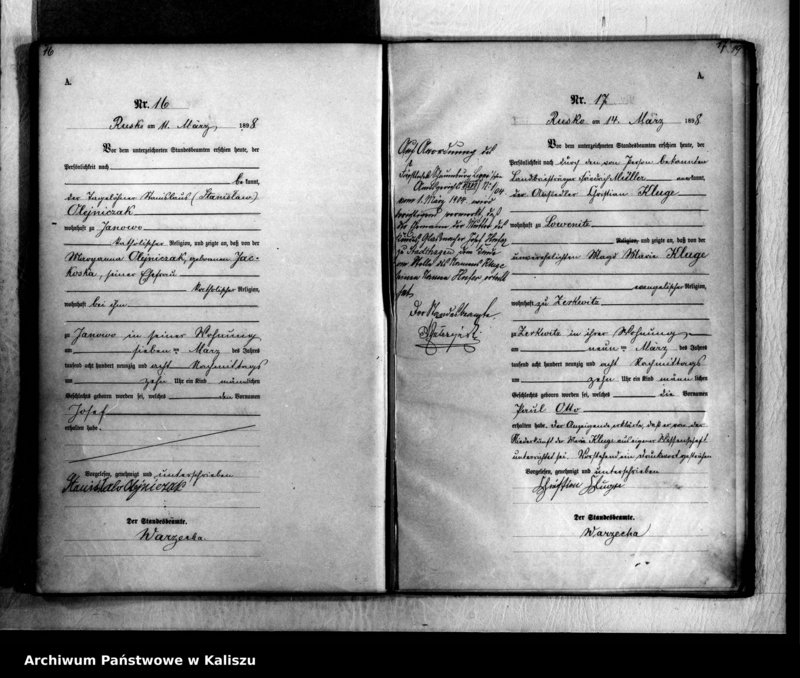 16
A.
Nr. 16
Rusko am 11. März 1898
Vor dem unterzeichneten Standesbeamten erschien heute, der
Persönlichkeit nach
bekannt,
der Tagelöhner Stanislaus (Stanislaw)
Olejniczak
wohnhaft zu Janowo
katholischer Religion, und zeigte an, daß von der
Maryanna Olejniczak, geborenen Jac-
koska, seiner Ehefrau
katholischer Religion,
wohnhaft bei ihm
zu Janowo in seiner Wohnung
am sieben ten März des Jahres
tausend acht hundert neunzig und acht Nachmittags
um zehn Uhr ein Kind männlichen
Geschlechts geboren worden sei, welches den Vornamen
Josef
erhalten habe.
Vorgelesen, genehmigt und unterschrieben
Stanislalo Olejniczak
Der Standesbeamte.
Warzecha
17
A.
Nr. 17
Rusko am 14. März 1898
Vor dem unterzeichneten Standesbeamten erschien heute, der
Persönlichkeit nach durch den von Person bekannten
Landbriefträger Friedrich Müller anerkannt,
der Christian Kluge
wohnhaft zu Lowenitz
Religion, und zeigte an, daß von der
unverehelichten Magd Marie Kluge
evangelischer Religion,
wohnhaft zu Zerkwitz
zu Zerkwitz in ihrer Wohnung
am neun ten März des Jahres
tausend acht hundert neunzig und acht Nachmittags
um zehn Uhr ein Kind männlichen
Geschlechts geboren worden sei, welches die Vornamen
Paul Otto
erhalten habe. Der Anzeigende erklärte, daß er von der
Niederkunft der Marie Kluge aus eigener Wissenschaft
unterrichtet sei. Vorstehend ein Druckwort gestrichen
Vorgelesen, genehmigt und unterschrieben
Christian Kluge
Der Standesbeamte.
Warzecha
Auf Anordnung des
Amtsgerichts
vom 1. März 1904 wird
berichtigend vermerkt, daß
der Ehemann der Mutter des
Kindes, Glasmacher
zu Stadthagen, dem Kinde
an Stelle des Namens Kluge
seinen Namen erteilt
hat.
Der Standesbeamte
Archiwum Państwowe w Kaliszu